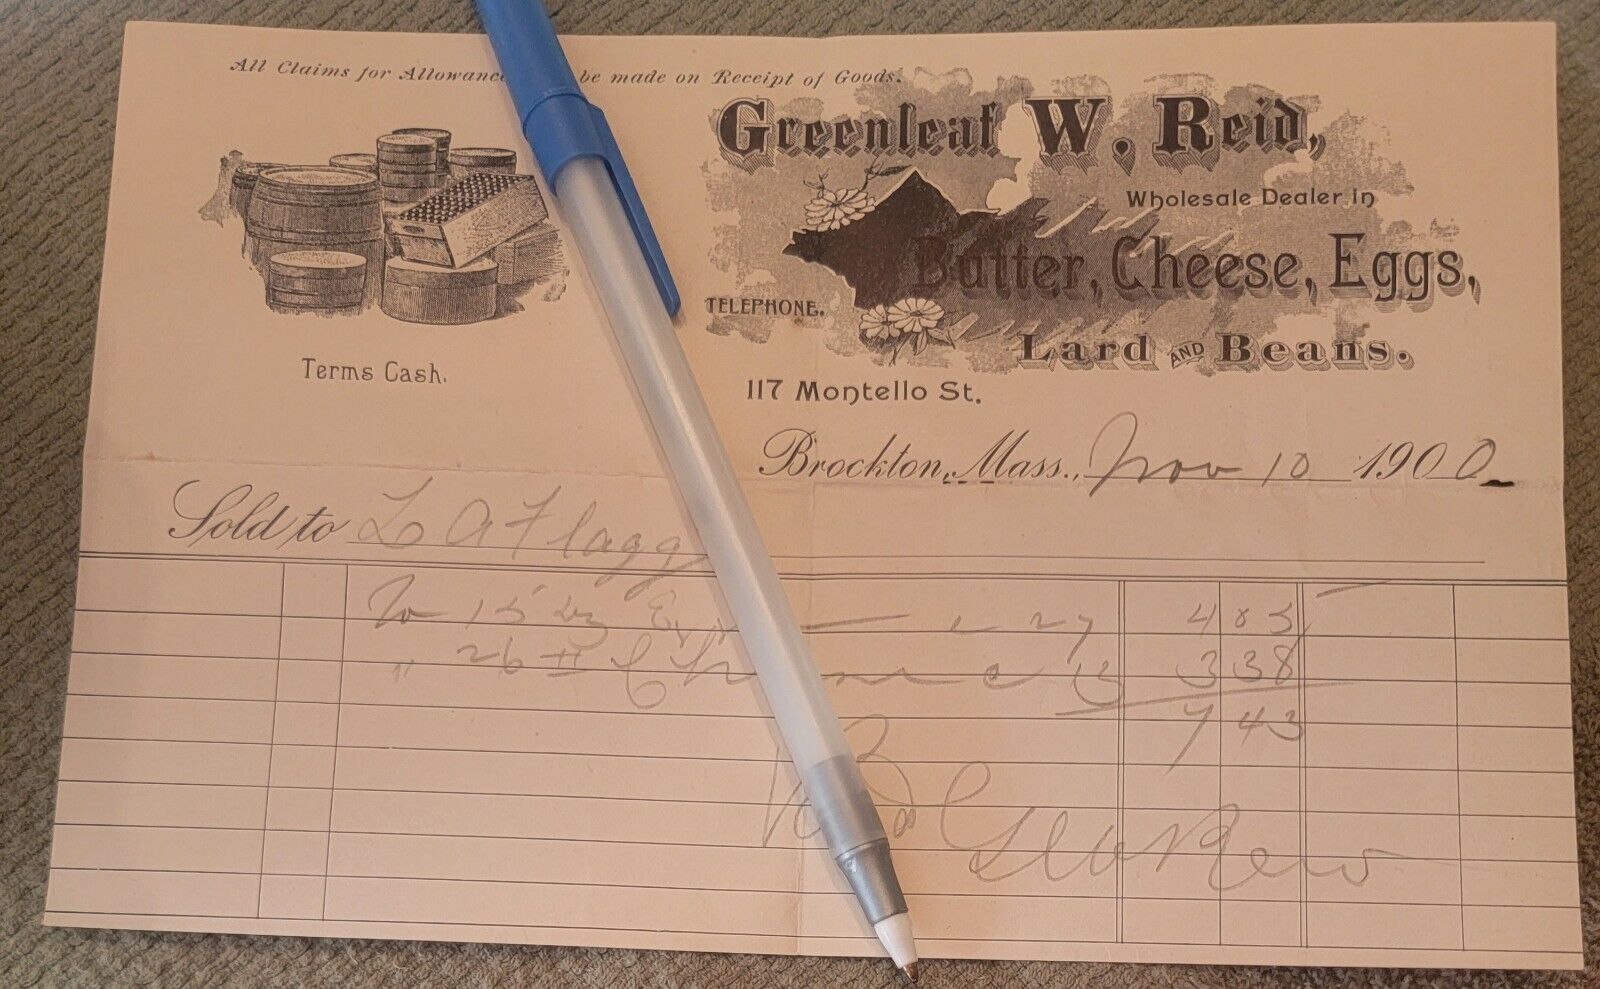 All Claims for Allowanc be made on Receipt of Goods.
Greenleaf W. Reid,
Wholesale Dealer in
Butter, Cheese, Eggs,
TELEPHONE.
Lard AND Beans.
Terms Cash.
117 Montello St.
Brockton, Mass., Nov 10 1900
Sold to L A Flagg
To 15 dz Eg 27 4 05
" 26 # Ch 13 3 38
7 43
Pd G W Reid